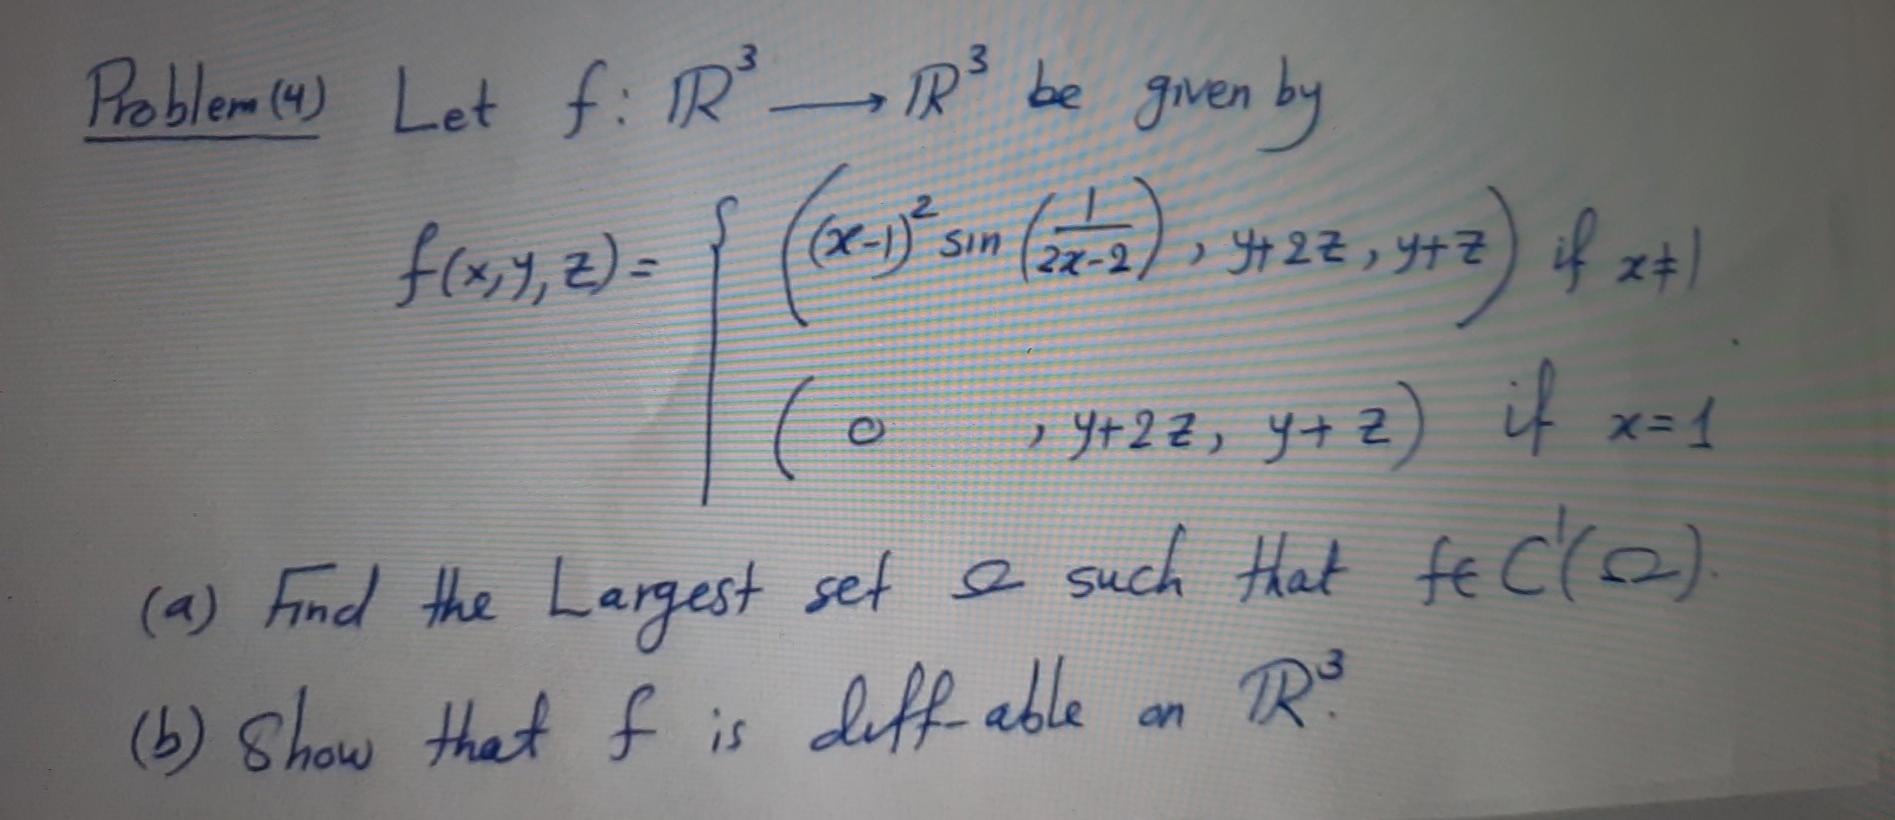 Problem (4) Let f: ℝ³ → ℝ³ be given by
f(x,y,z) = { ((x-1)² sin (1/(2x-2)), y+2z, y+z) if x≠1
(0, y+2z, y+z) if x=1
(a) Find the Largest set Ω such that f∈C¹(Ω).
(b) Show that f is diff-able on ℝ³.